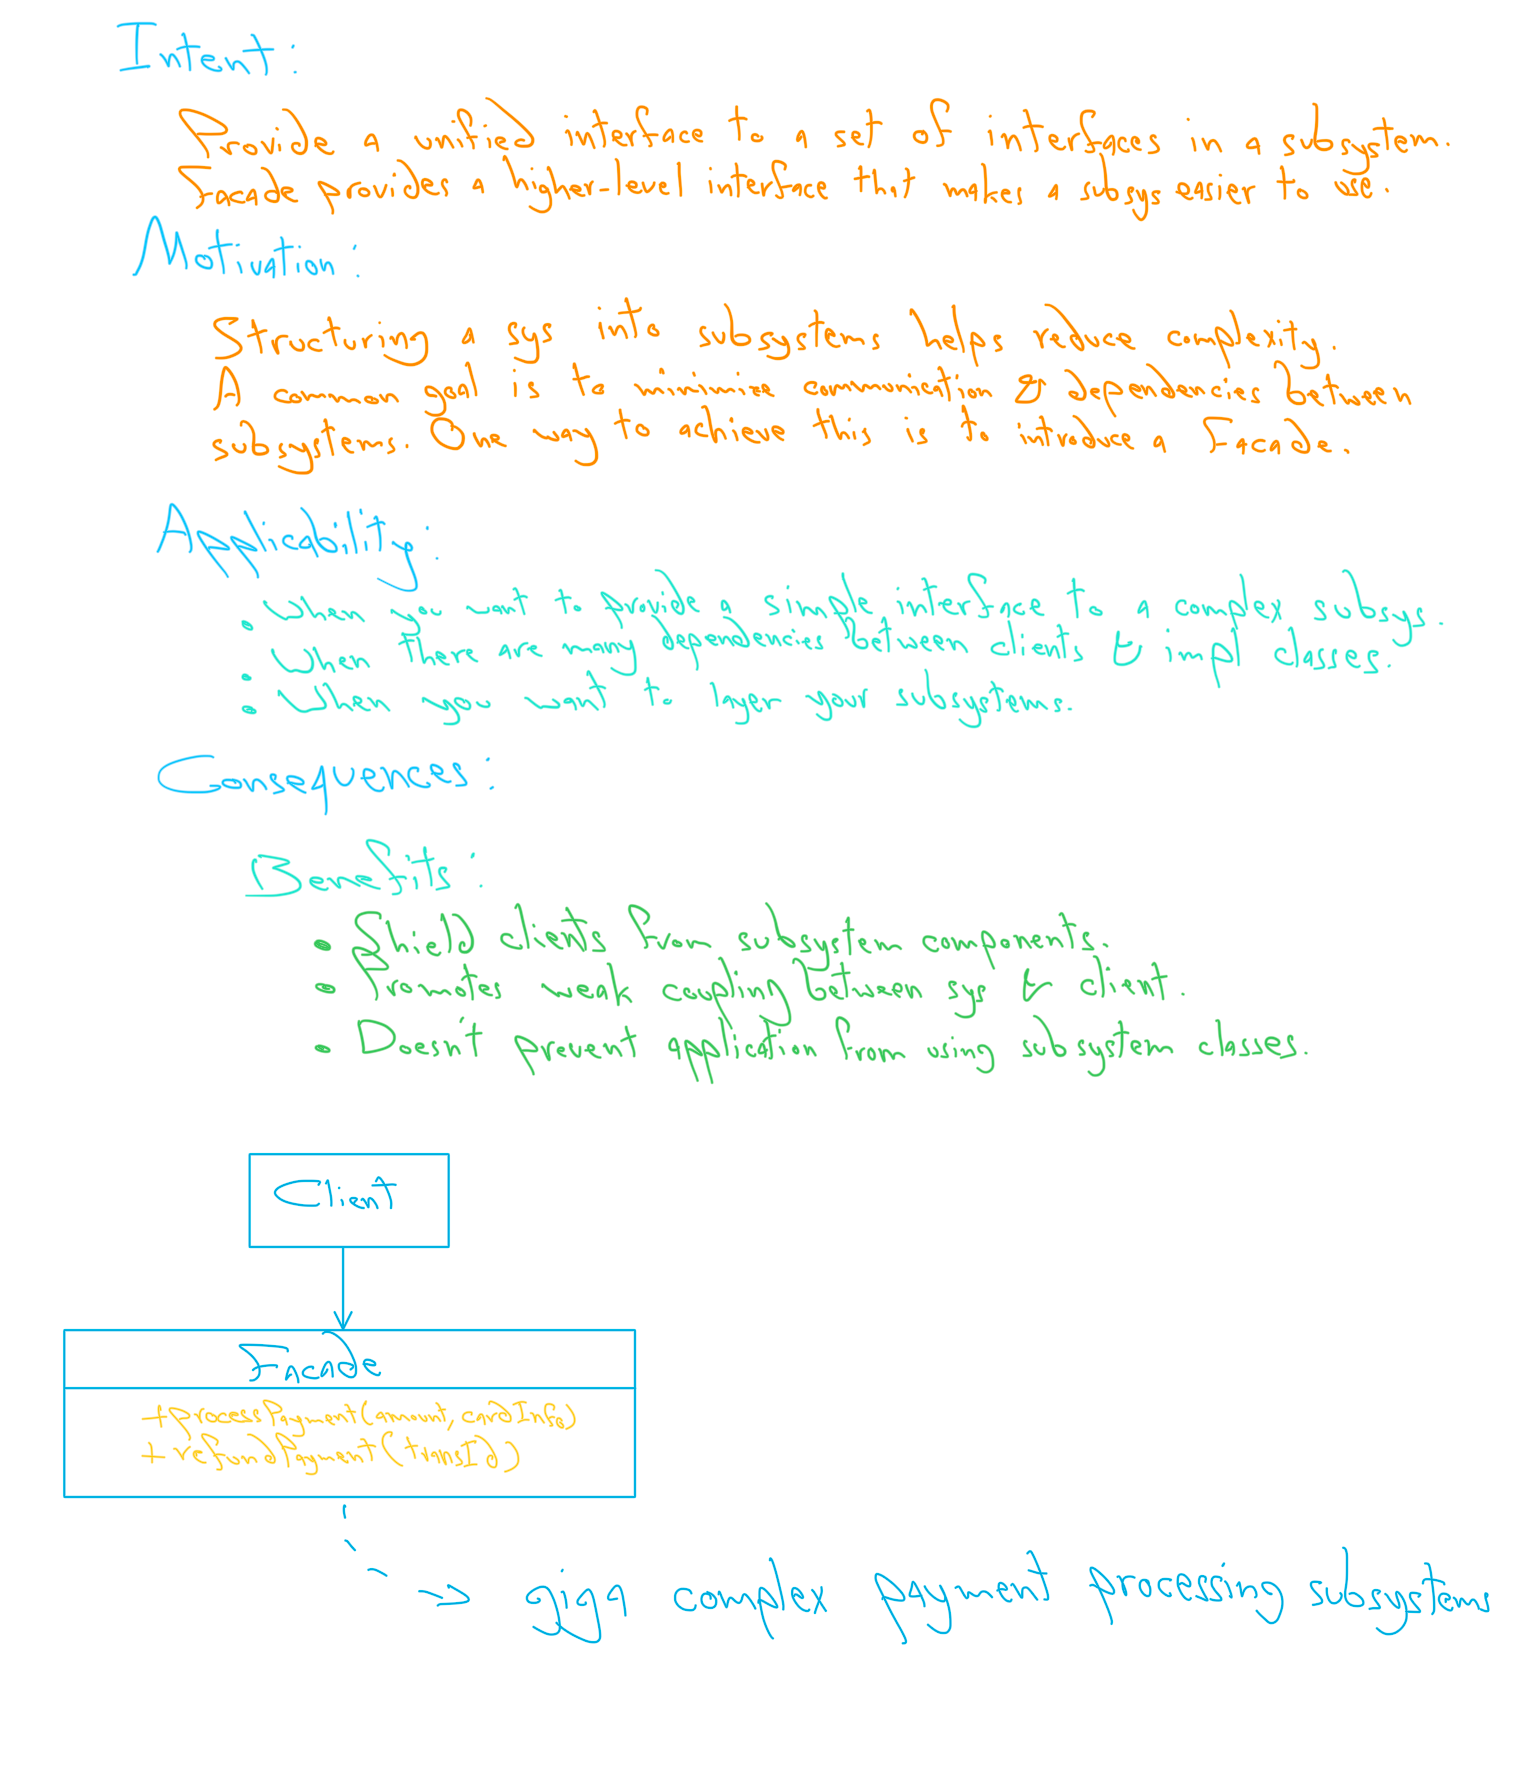 Intent:
Provide a unified interface to a set of interfaces in a subsystem.
Facade provides a higher-level interface that makes a subsys easier to use.
Motivation:
Structuring a sys into subsystems helps reduce complexity.
A common goal is to minimize communication & dependencies between
subsystems. One way to achieve this is to introduce a Facade.
Applicability:
• When you want to provide a simple interface to a complex subsys.
• When there are many dependencies between clients & impl classes.
• When you want to layer your subsystems.
Consequences:
Benefits:
• Shield clients from subsystem components.
• Promotes weak coupling between sys & client.
• Doesn't prevent application from using subsystem classes.
Client
Facade
+processPayment(amount, cardInfo)
+refundPayment(transId)
giga complex payment processing subsystems